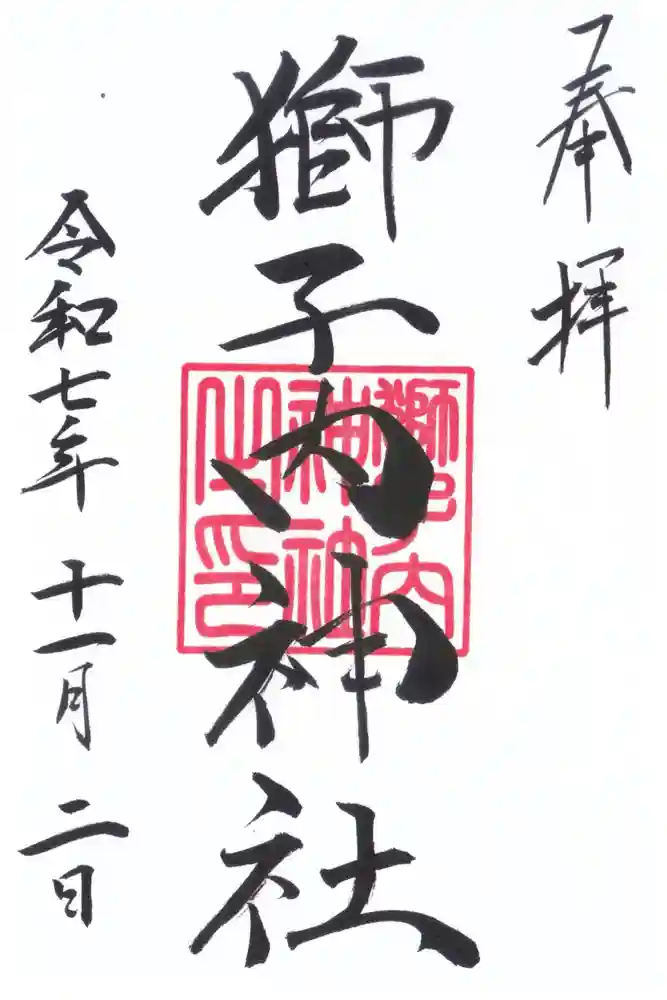 奉拝
獅子内神社
令和七年十一月二日
獅子内
神社
之印